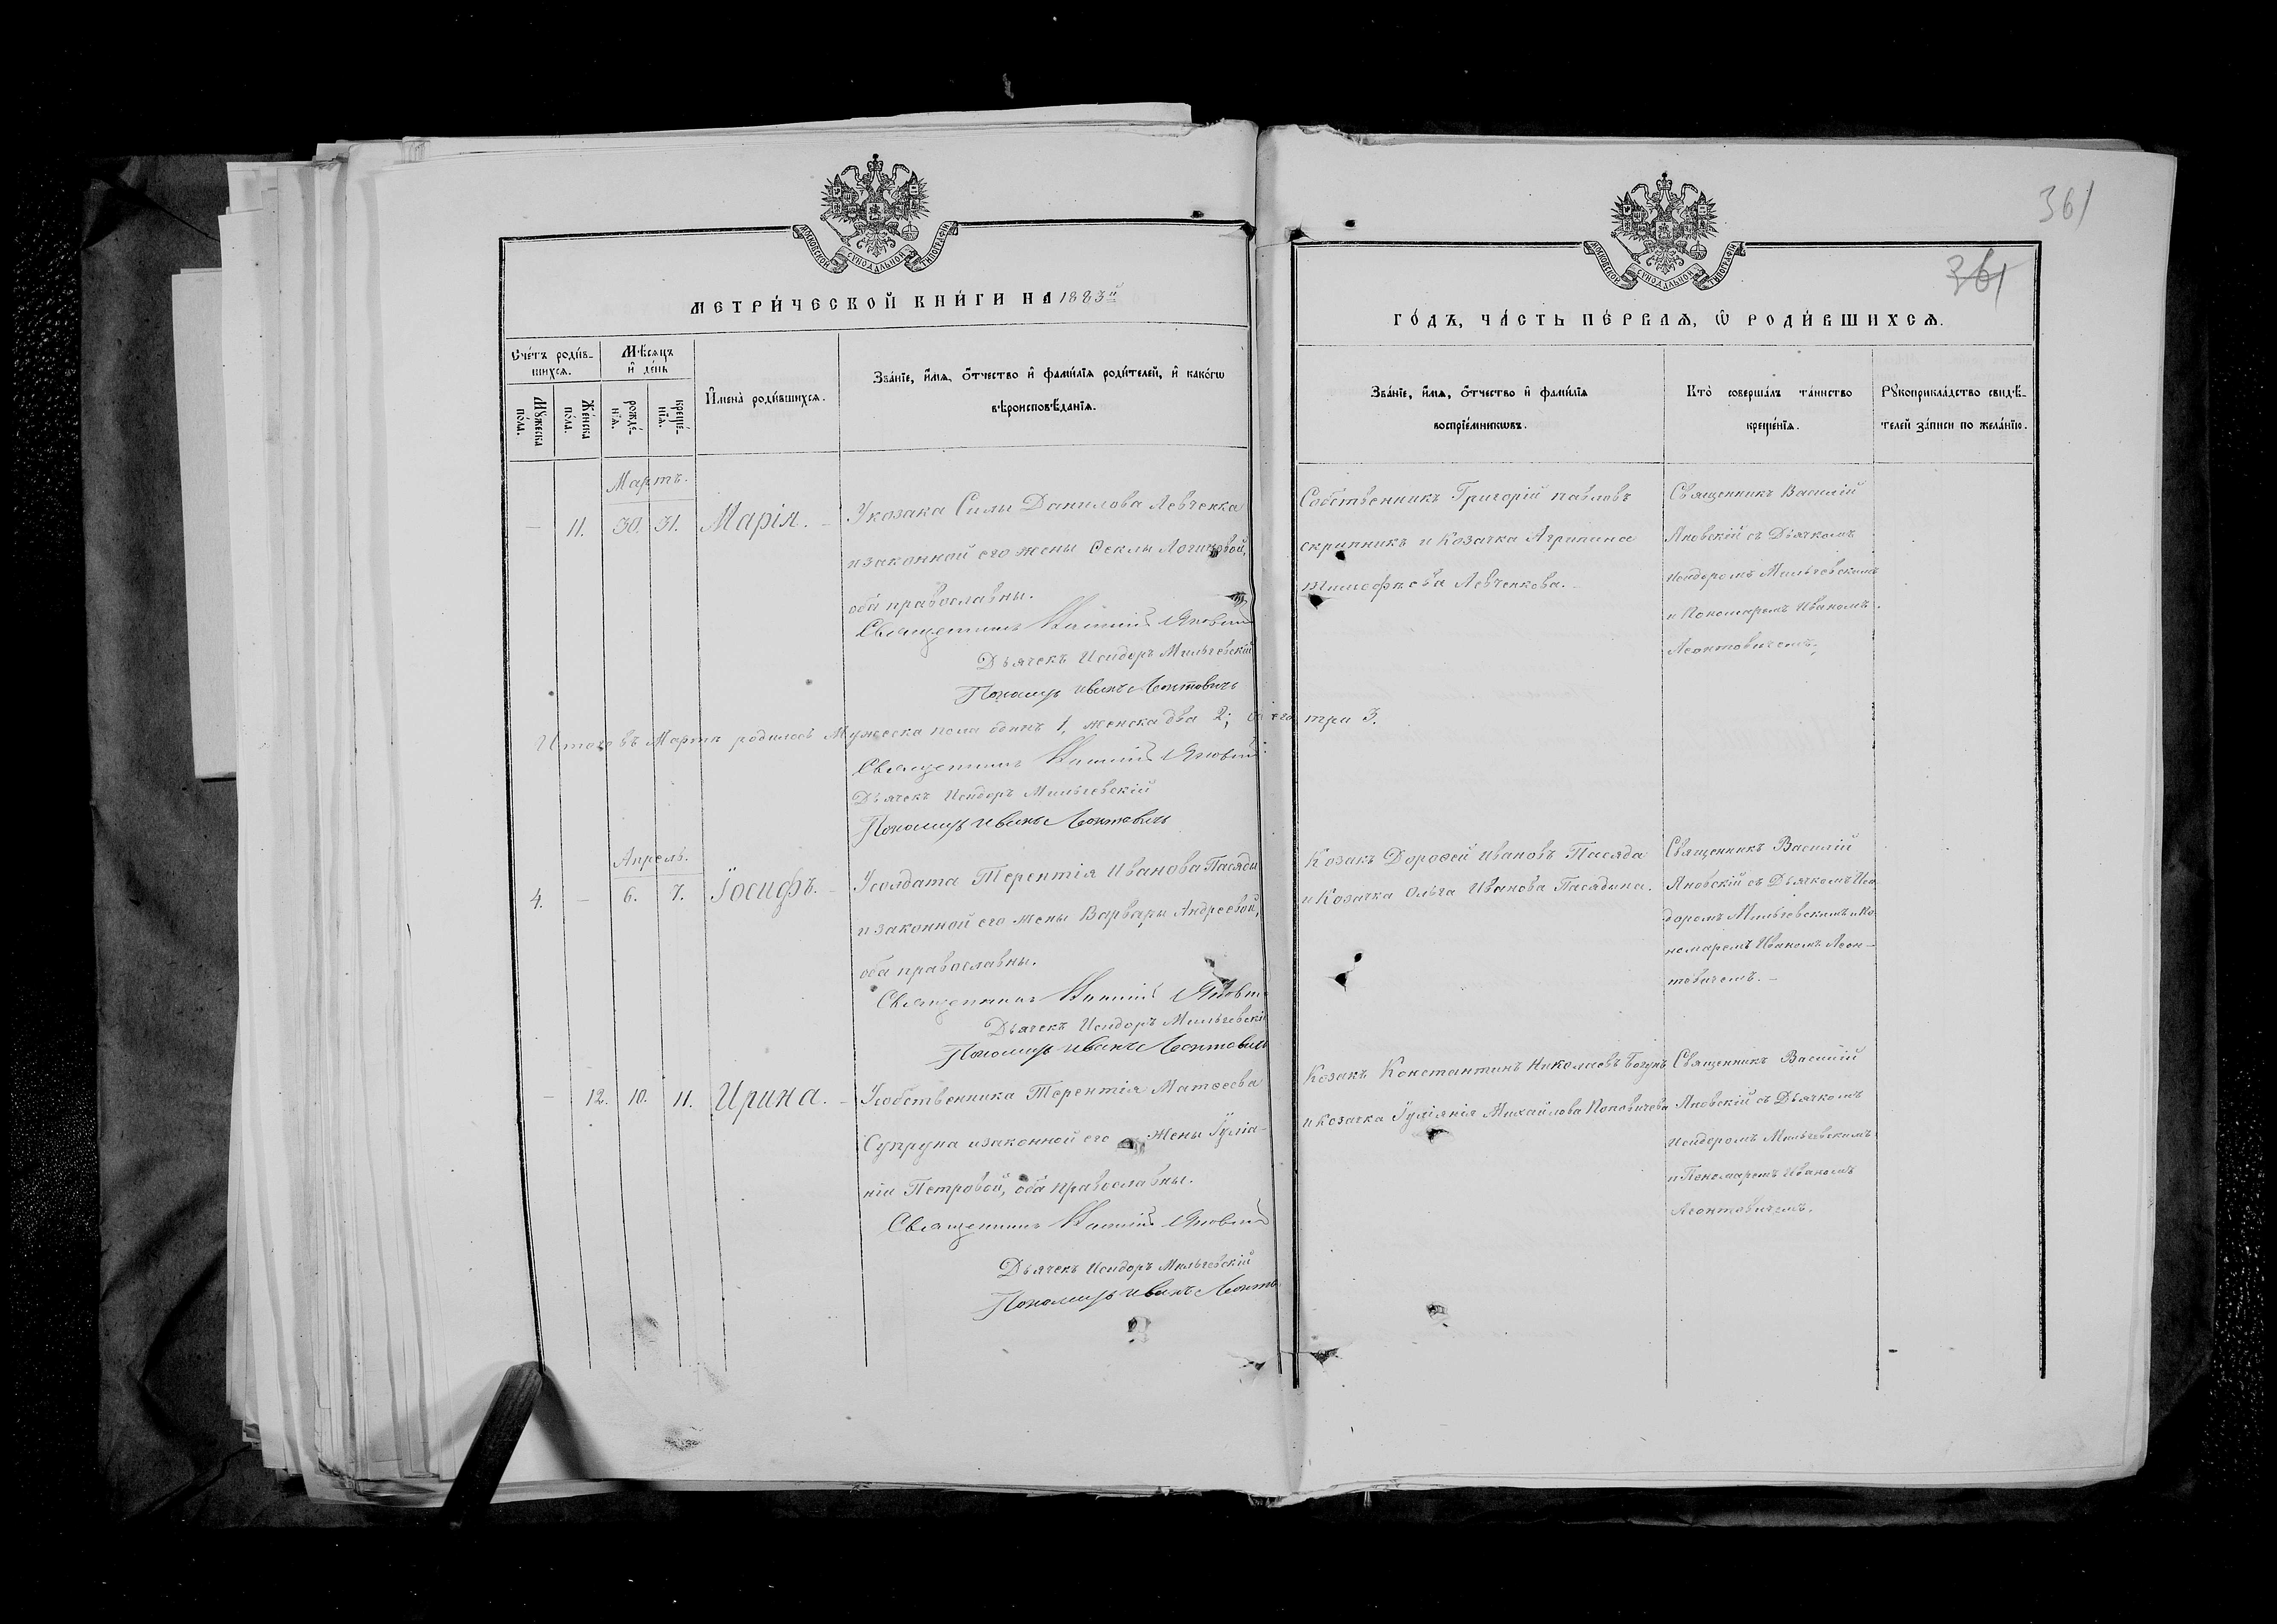 361
361
МОСКОВСКОЙ СѴНОДАЛЬНОЙ ТИПОГРАФІИ
МОСКОВСКОЙ СѴНОДАЛЬНОЙ ТИПОГРАФІИ
МЕТРИ́ЧЕСКОЙ КНИ́ГИ НА 1883й
ГО́ДЪ, ЧА́СТЬ ПЕ́РВАЯ, Ѡ РОДИ́ВШИХСЯ.
Сче́тъ роди́в-
шихся.
Мꙋжеска
пола.
Же́нска
пола.
Мѣсяцъ
и де́нь
рожде́-
нїя.
креще́-
нїя.
Имена̀ роди́вшихся.
Зва́нїе, и́мя, о́тчество и фами́лїя роди́телей, и како́гѡ
вѣроисповѣ́данїя.
Зва́нїе, и́мя, о́тчество и фами́лїя
воспрїе́мникѡвъ.
Кто̀ соверша́лъ та́инство
креще́нїя.
Рꙋкоприкла́дство свидѣ́-
телей за́писи по жела́нїю.
Мартъ.
— 11. 30. 31. Марія. —
У козака Силы Данилова Левченка
и законной его жены Феклы Логиновой,
оба православны.
Священникъ Василій Яновскій
Дьячекъ Исидоръ Мильчевскій
Пономарь Иванъ Леонтовичъ
Собственникъ Григорій павловъ
скрипникъ и Козачка Агрипина
тимофѣева Левченкова.
Священникъ Василій
Яновскій съ Дьячкомъ
Исидоромъ Мильчевскимъ
и Пономаремъ Иваномъ
Леонтовичемъ.
Итого въ Мартѣ родилось Мужеска пола одинъ 1, женска два 2; обоего три 3.
Священникъ Василій Яновскій
Дьячекъ Исидоръ Мильчевскій
Пономарь Иванъ Леонтовичъ
Апрель.
4. — 6. 7. Іосифъ. —
У солдата Терентія Иванова Пасяды
и законной его жены Варвары Андреевой,
оба православны.
Священникъ Василій Яновскій
Дьячекъ Исидоръ Мильчевскій
Пономарь Иванъ Леонтовичъ
Козакъ Дорофей Ивановъ Пасяда
и Козачка Ольга Иванова Пасядина.
Священникъ Василій
Яновскій съ Дьячкомъ Иси
доромъ Мильчевскимъ и По
номаремъ Иваномъ Леон-
товичемъ. —
— 12. 10. 11. Ирина. —
У собственника Терентія Матѳеева
Супруна и законной его жены Іуліа-
ніи Петровой, оба православны.
Священникъ Василій Яновскій
Дьячекъ Исидоръ Мильчевскій
Пономарь Иванъ Леонто
Козакъ Константинъ Николаевъ Богунъ
и козачка Іуліянія Михайлова Поповичева
Священникъ Василій
Яновскій съ Дьячкомъ
Исидоромъ Мильчевскимъ
и Пономаремъ Иваномъ
Леонтовичемъ.